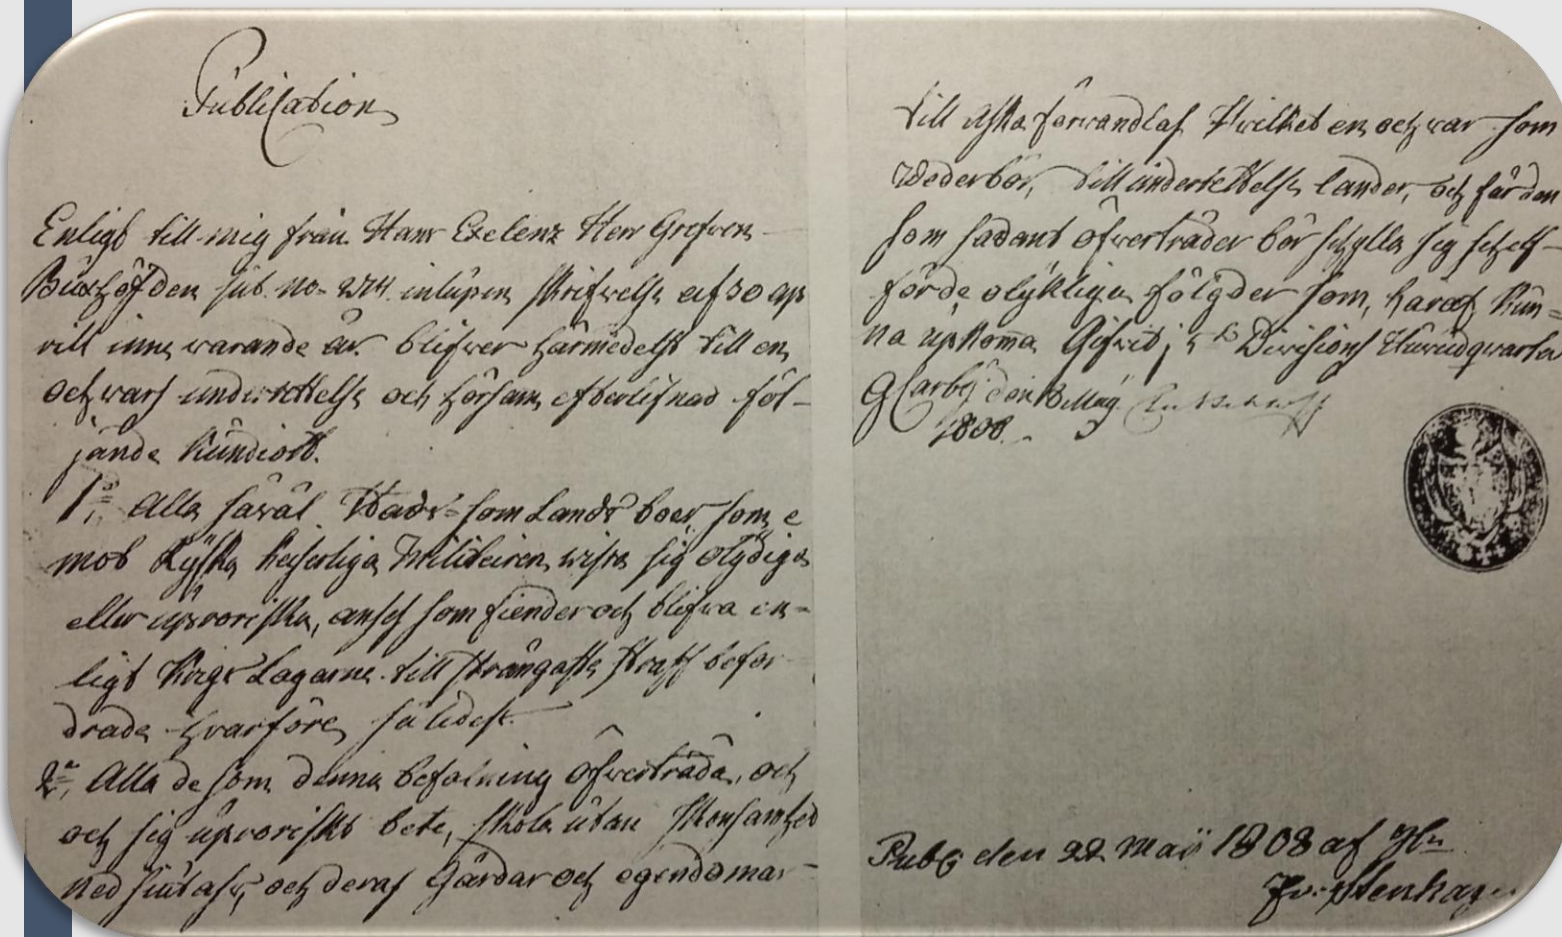 Publication
Enligt till mig från Hans Exelenz Herr Grefven
Buxhöfden sub no= 274 inlupen skrifwelse af 30 ap
rill inne warande år blifwer härmedelst till en
och wars underrettelse och hörsam efterlefnad föl-
jande kundiort.
1o Alla såväl Stads= som Lands boer, som e
mot Ryska keiserliga Militeiren wisa sig olydiga
eller uproriska, anses som fiender och blifwa en-
ligt Krigs Lagarne till strängaste straff befor
drade hvarföre således
2o Alla de som denna befalning öfverträda, och
och sig uproriskt bete, skola utan skonsamhet
ned skiutas, och deras Gårdar och egendomar
till Aska förwandlas Hwilket en och war som
Wederbör, till underrettelse länder, och får den
som sådant öfwerträder bör skylla sig sielf
för de olykliga fölgder som häraf kun=
na upkomma Gifwit i 5te Divisions Huwudqwarter
GCarby den 13 Maij
1808.
Publ den 22 Maii 1808 af